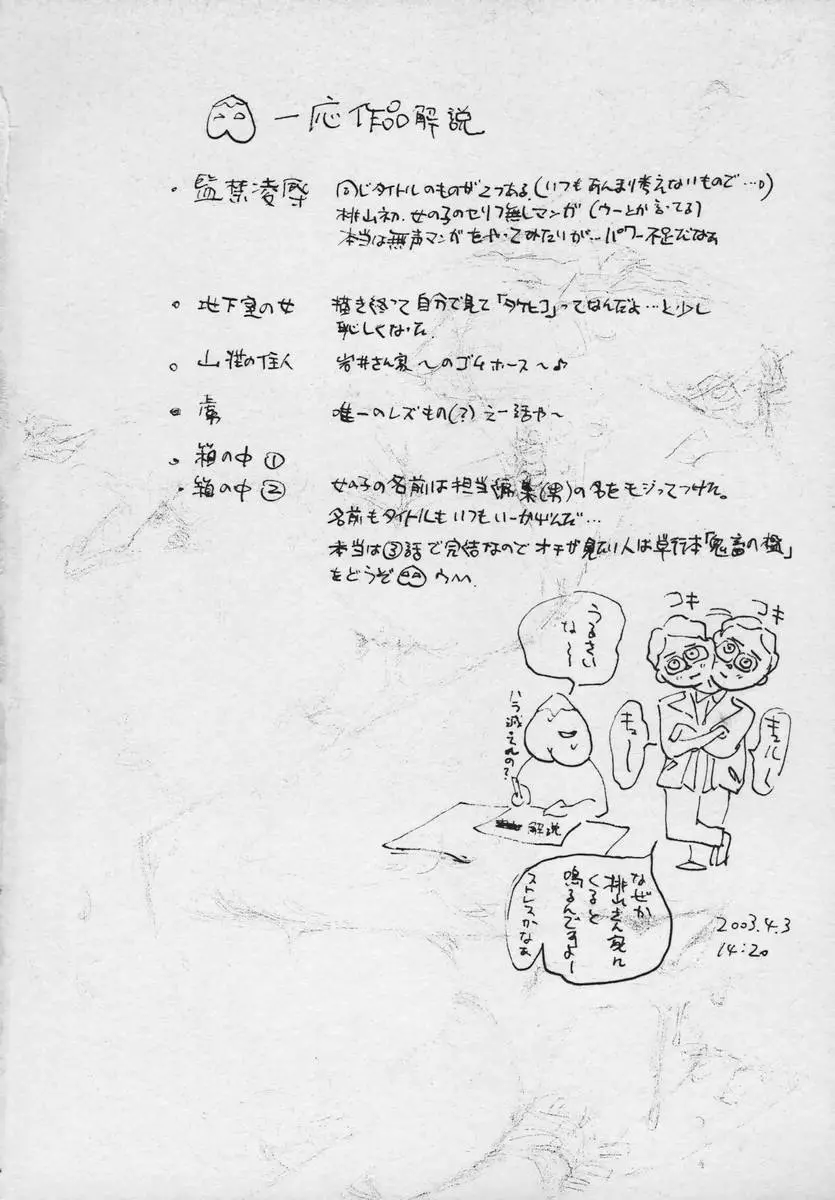 一応作品解説
・監禁凌辱 同じタイトルのものが2つある。(いつもあんまり考えないもので…。)
桃山初、女の子のセリフ無しマンガ(ウーとか言ってる)
本当は無声マンガをやってみたいが…パワー不足だなぁ
・地下室の女 描き終って自分で見て「タケヒコ」ってなんだよ…と少し
恥しくなった
・山荘の住人 岩井さん家〜のゴムホース〜♪
・唯一のレズもの(?)えー話や〜
・箱の中①
・箱の中② 女の子の名前は担当編集(男)の名をモジってつけた。
名前もタイトルもいつもいーかげんだ…
本当は③話で完結なのでオチが見たい人は単行本「鬼畜の檻」
をどうぞ ウヘヘ
うるさい
な〜〜
ハラ減ってんの?
コキ
コキ
キュー
キュルルー
解説
なぜか
桃山さん家に
くると
鳴るんですよー
ストレスかなぁ
2003.4.3
14:20